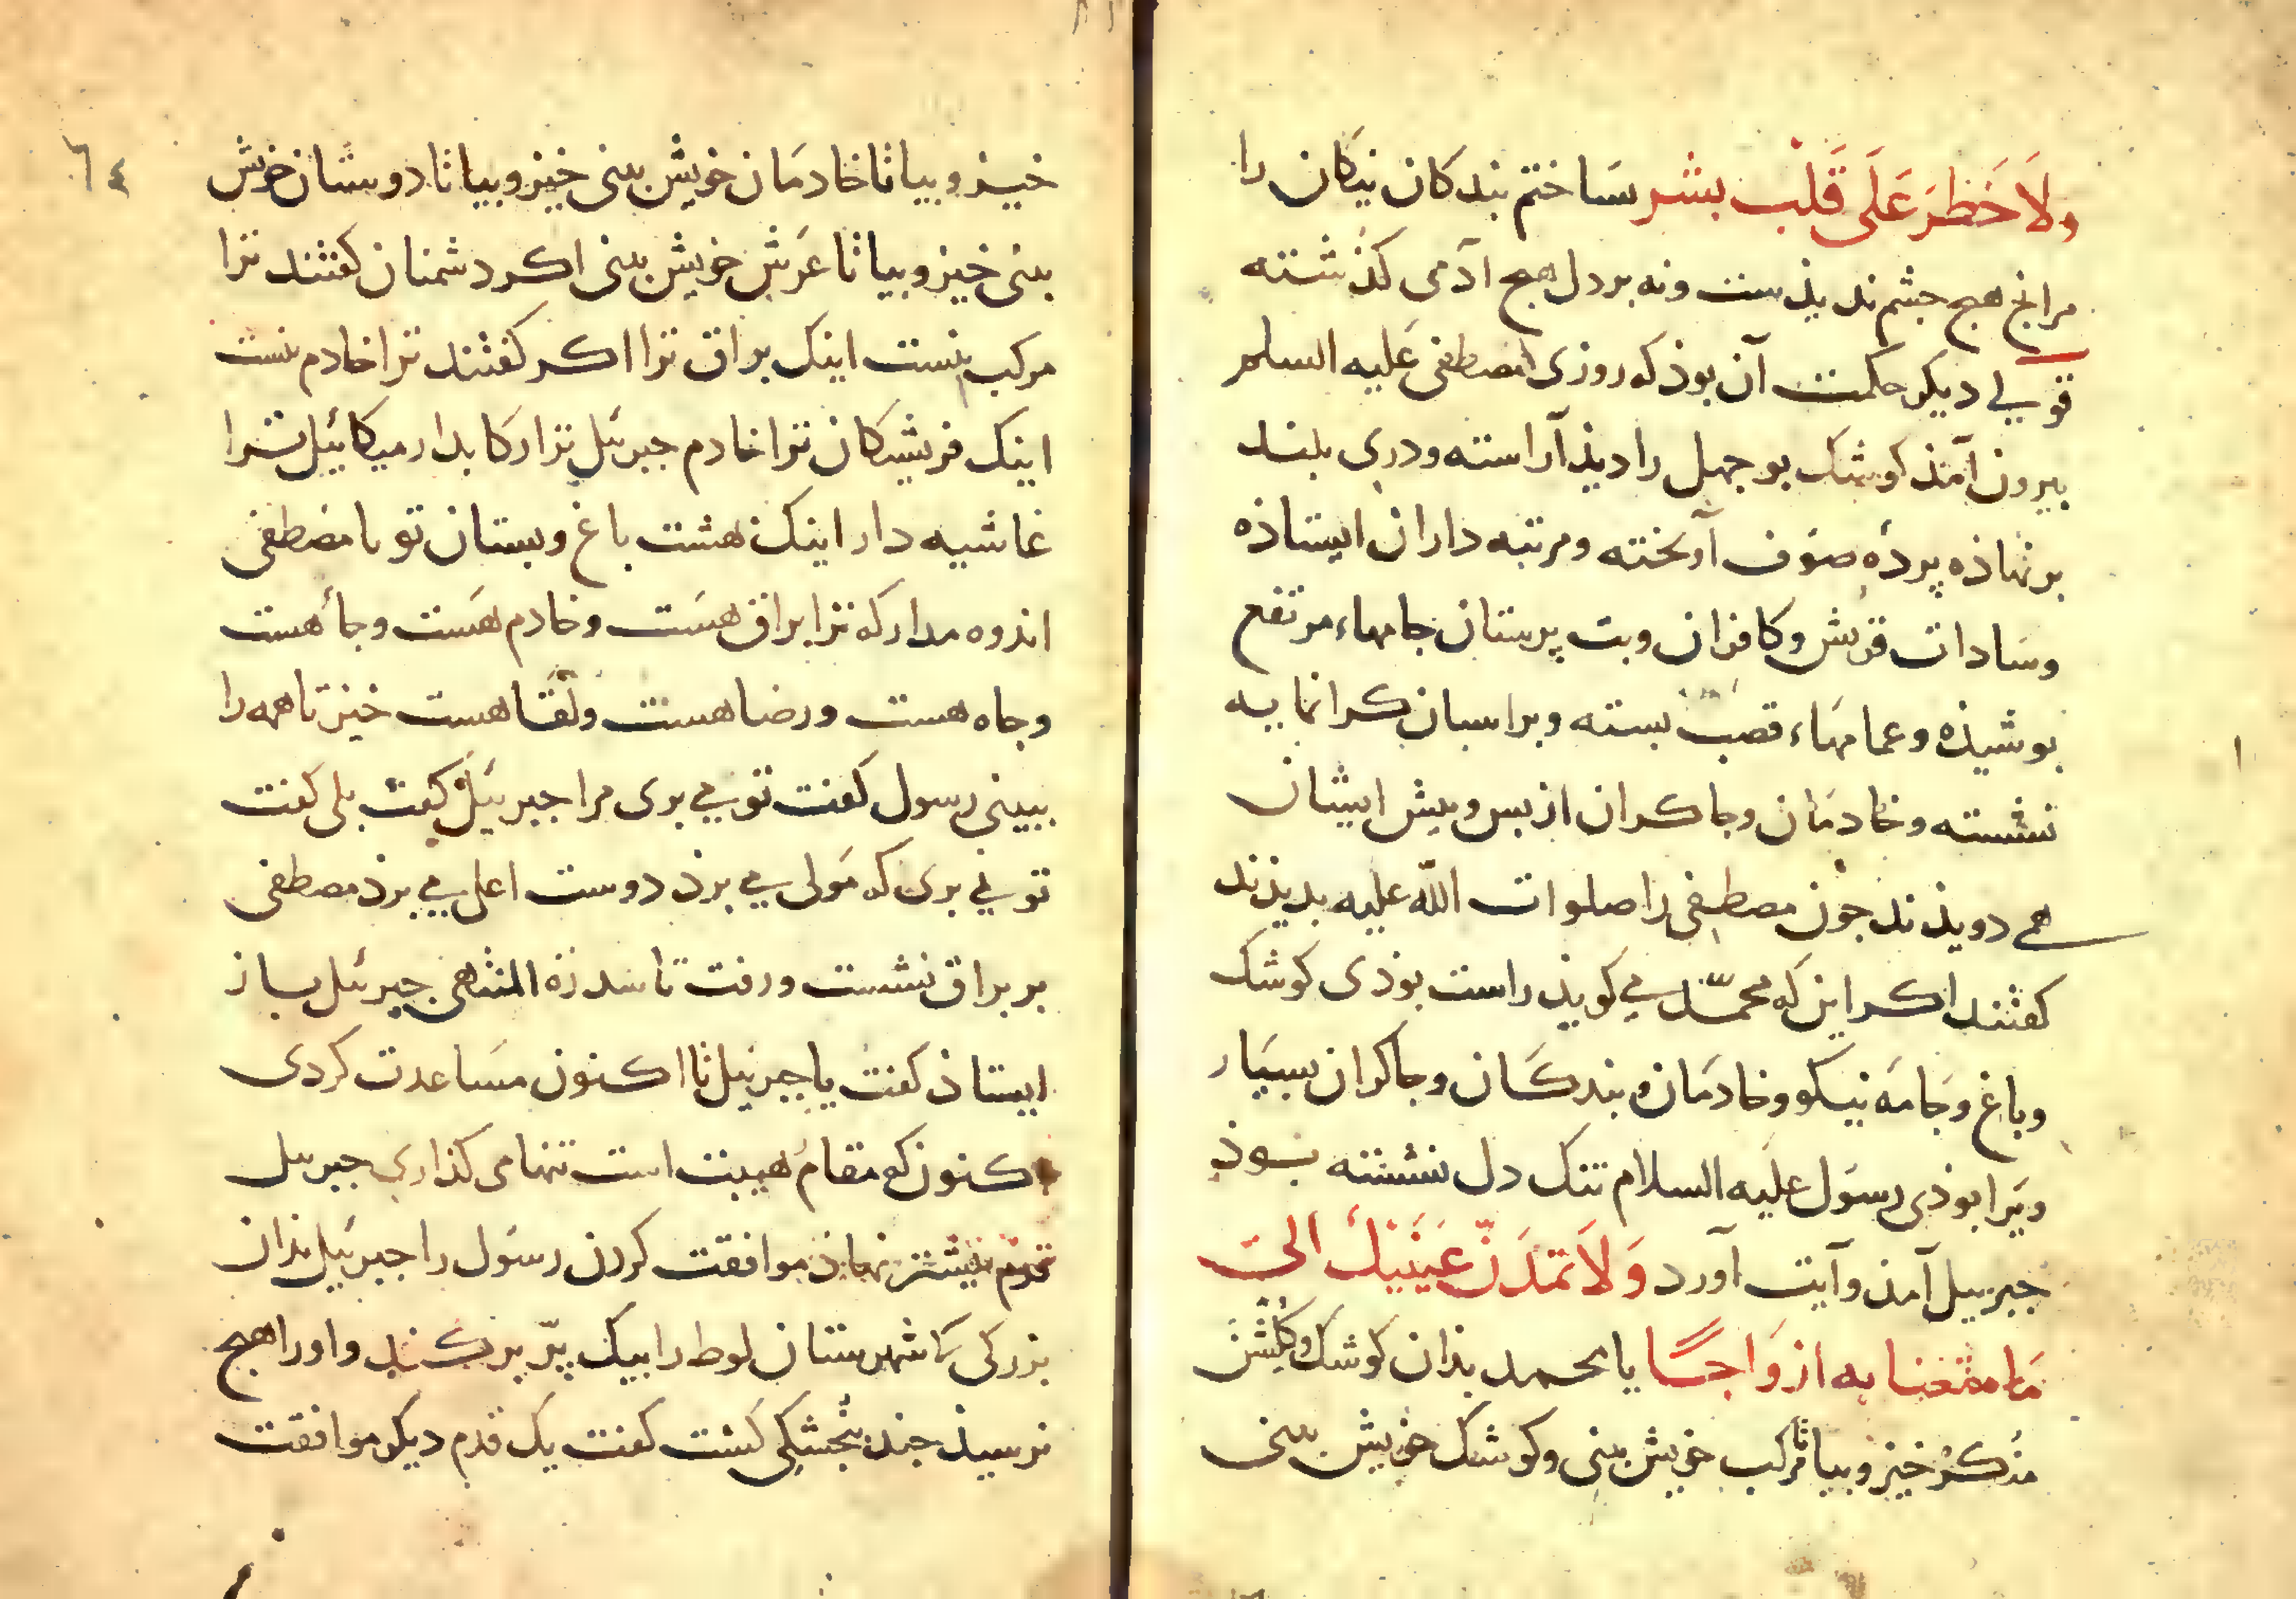 ولَا خَطَرَ عَلَى قَلْب بشر ساختم بندکان نیکان را
مرانج هیج جشم ندیذست ونه بر دل هیج آدمی کذشته
قولی دیکر حکمت آن بوذ که روزی مصطفی علیه السلم
بیرون آمذ کوشک بوجهل را دیذ آراسته ودری بلند
برنهاذه پردهٔ صوف آویخته ومرتبه داران ایستاذه
وسادات قریش وکافران وبت پرستان جامهاء مرتفع
بوشیذه وعمامهاء قصب بسته وبر اسبان کرانمایه
نشسته وخادمان وجاکران از بس وبیش ایشان
همی دویذند جون مصطفی را صلوات الله علیه بدیذند
کفتند اکر این که محمّد می کویذ راست بوذی کوشک
وباغ وجامه نیکو وخادمان وبندکان وجاکران بسیار
ویرا بوذی رسول علیه السلام تنک دل نشسته بوذ
جبرییل آمذ وآیت آورد وَلَا تَمُدَنَّ عَيْنَيْكَ الى
مَا متعنا به ازوَاجًا یا محمد بذان کوشک وکلشن
منکر خیز وبیا تا مرکب خویش بینی وکوشک خویش بینی
٦٤
خیز وبیا تا خادمان خویش بینی خیز وبیا تا دوستان خویش
بینی خیز وبیا تا عرش خویش بینی اکر دشمنان کفتند ترا
مرکب نیست اینک براق ترا اکر کفتند ترا خادم نیست
اینک فریشکان ترا خادم جبرئیل ترا رکابدار میکائیل ترا
غاشیه دار اینک هشت باغ وبستان تو یا مصطفی
اندوه مدار که ترا براق هست وخادم هست وجاء هست
وجاه هست ورضا هست ولقا هست خیز تا همه را
ببینی رسول کفت تو می بری مرا جبرئیل کفت بلی کفت
تو می بری که مولی می برذ دوست اعلی می برذ مصطفی
بر براق نشست ورفت تا سدرة المنتهی جبرئیل باز
ایستاذ کفت یا جبرئیل تا اکنون مساعدت کردی
اکنون که مقام هیبت است تنها می کذاری جبرئیل
قدم بیشتر نهاذ موافقت کردن رسول را جبرئیل بذان
بزرکی که شهرستان لوط را بیک پرّ برکند واورا هیج
نرسیذ جند بنجشکی کشت کفت یک قدم دیکر موافقت